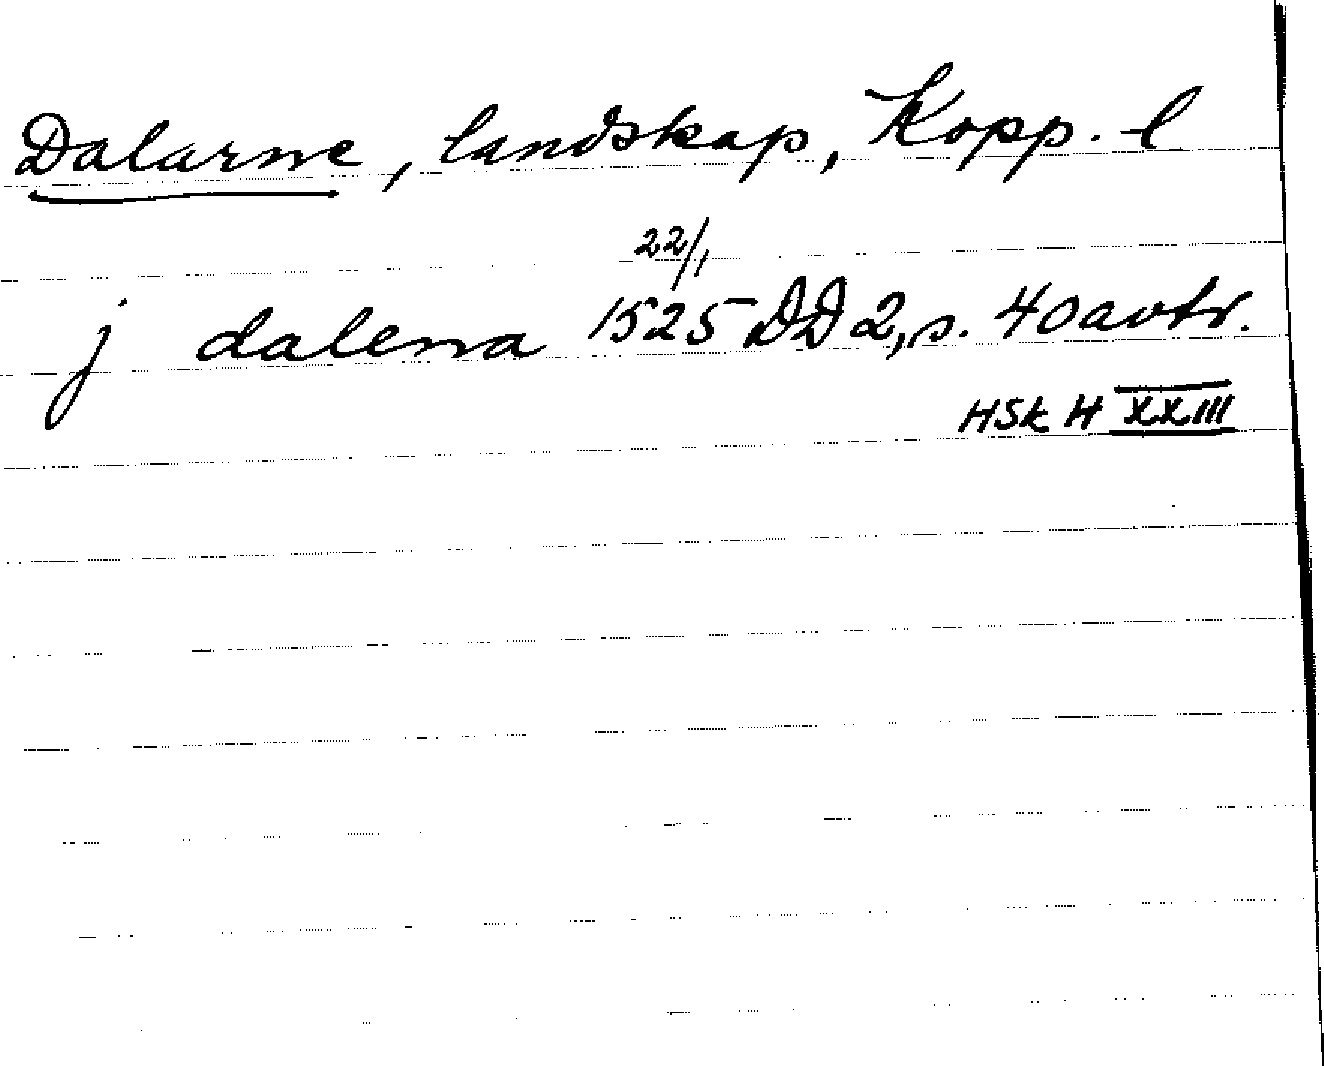 Dalarne, landskap, Kopp. l
22/1
j dalena 1525 DD 2, s. 40 avtr.
HSk H XXIII